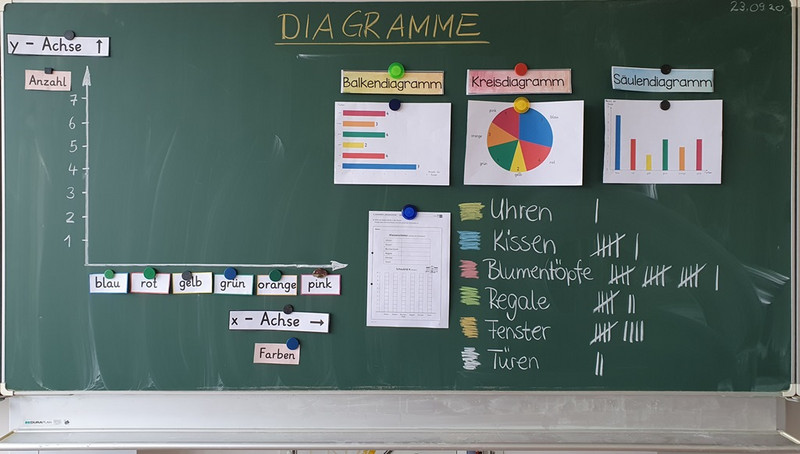 DIAGRAMME
23.09.20
y - Achse ↑
Anzahl
7
6
5
4
3
2
1
blau rot gelb grün orange pink
x - Achse →
Farben
Balkendiagramm Kreisdiagramm Säulendiagramm
Uhren |
Kissen |||| |
Blumentöpfe |||| |||| |||| |
Regale |||| ||
Fenster |||| ||||
Türen ||